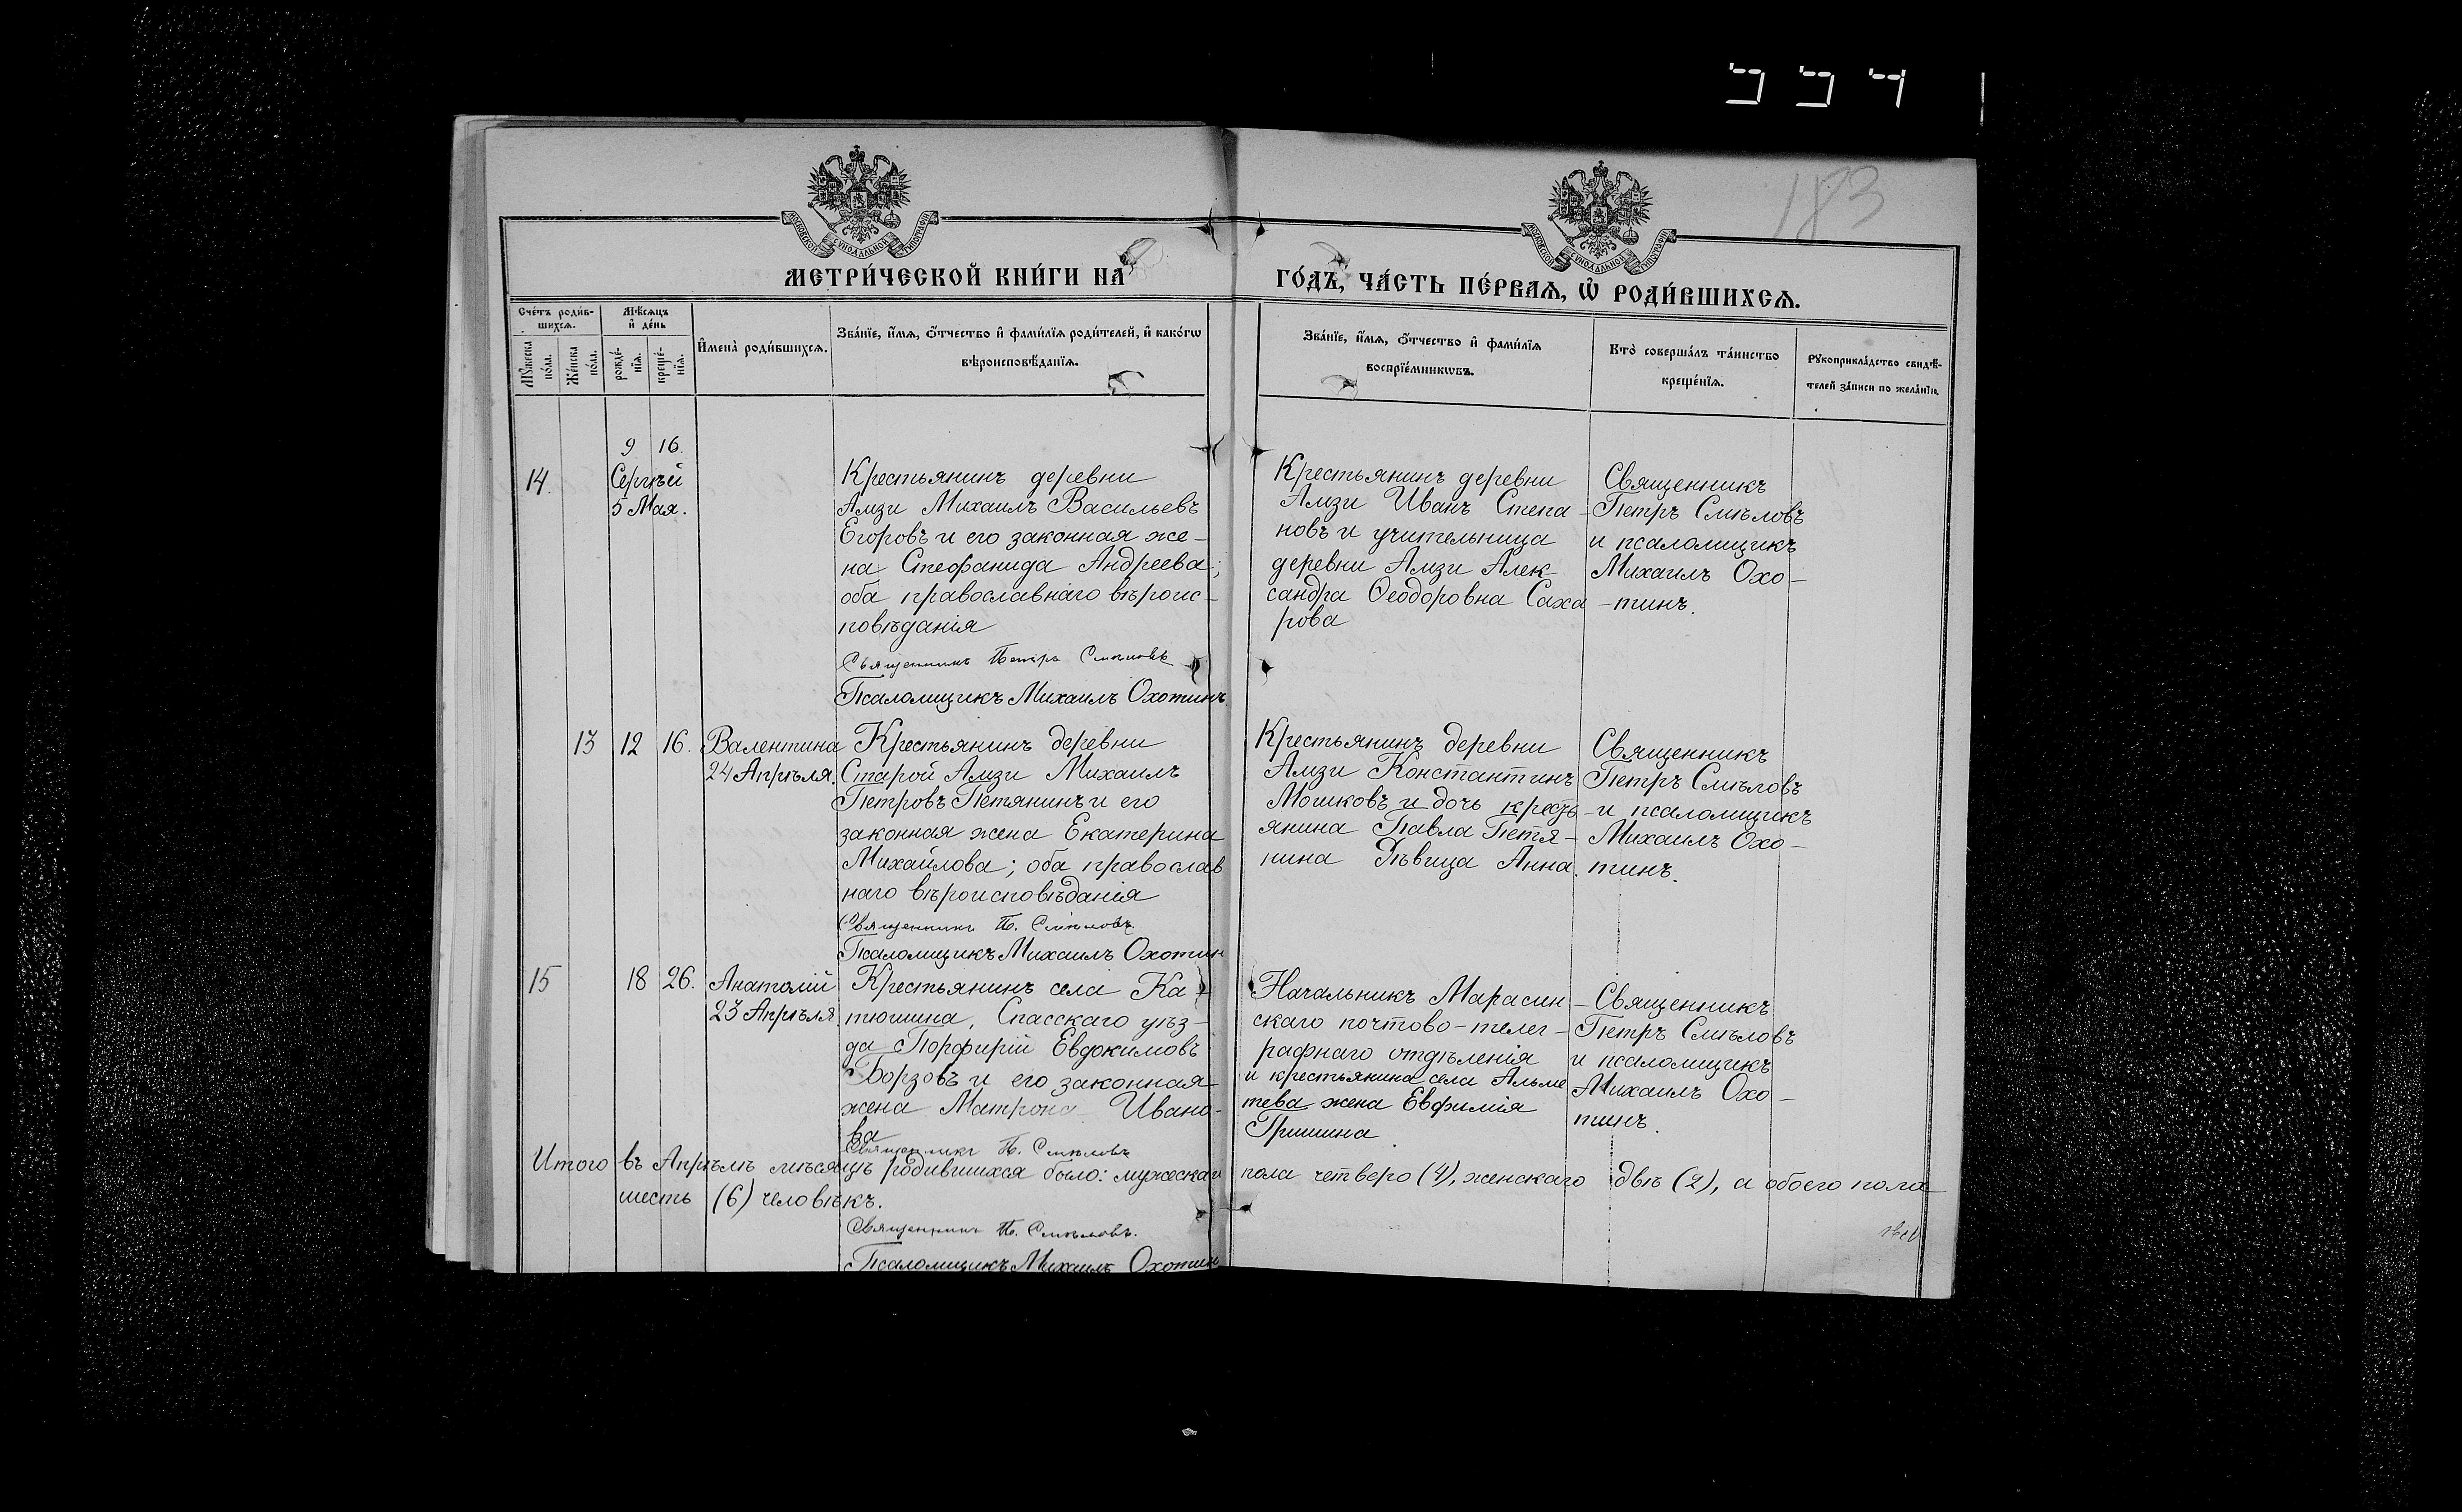 183
МОСКОВСКОЙ СѴНОДАЛЬНОЙ ТИПОГРАФІИ
МОСКОВСКОЙ СѴНОДАЛЬНОЙ ТИПОГРАФІИ
МЕТРИ́ЧЕСКОЙ КНИ́ГИ НА
ГО́ДЪ, ЧА́СТЬ ПЕ́РВАЯ, Ѡ҆ РОДИ́ВШИХСЯ.
Сче́тъ роди́в-
шихся.
Мѣ́сяцъ
и҆ де́нь
Мꙋ́жеска
по́ла.
Же́нска
по́ла.
рожде́-
нїя.
креще́-
нїя.
И҆мена̀ роди́вшихся.
Зва́нїе, и҆́мя, ѻ҆́тчество и҆ фами́лїя роди́телей, и҆ како́гѡ
вѣроисповѣ́данїя.
Зва́нїе, и҆́мя, ѻ҆́тчество и҆ фами́лїя
воспрїе́мникѡвъ.
Кто̀ соверша́лъ та́инство
креще́нїя.
Рꙋкоприкла́дство свидѣ́-
телей за́писи по жела́нїю.
9 16.
14.
Сергѣй
5 Мая.
Крестьянинъ деревни
Амзи Михаилъ Васильевъ
Егоровъ и его законная же-
на Стефанида Андреева;
оба православнаго вѣроис-
повѣданія
Священникъ Петръ Смѣловъ
Псаломщикъ Михаилъ Охотинъ
Крестьянинъ деревни
Амзи Иванъ Степа-
новъ и учительница
деревни Амзи Алек
сандра Ѳеодоровна Саха
рова
Священникъ
Петръ Смѣловъ
и псаломщикъ
Михаилъ Охо-
-тинъ.
13 12 16.
Валентина
24 Апрѣля.
Крестьянинъ деревни
Старой Амзи Михаилъ
Петровъ Петянинъ и его
законная жена Екатерина
Михайлова; оба православ
наго вѣроисповѣданія
Священникъ П. Смѣловъ.
Псаломщикъ Михаилъ Охотин
Крестьянинъ деревни
Амзи Константинъ
Мошковъ и дочь кресть
янина Павла Петя-
нина Дѣвица Анна.
Священникъ
Петръ Смѣловъ
и псаломщикъ
Михаилъ Охо-
тинъ.
15 18 26.
Анатолій
23 Апрѣля.
Крестьянинъ села Ка-
тюшина, Спасскаго уѣз-
да Порфирій Евдокимовъ
Борзовъ и его законная
жена Матрона Ивано-
ва
Священникъ П. Смѣловъ
Начальникъ Марасин-
скаго почтово-телег-
рафнаго отдѣленія
и крестьянина села Альме
тева жена Евфимія
Гришина
Священникъ
Петръ Смѣловъ
и псаломщикъ
Михаилъ Охо-
тинъ.
Итого въ Апрѣлѣ мѣсяцѣ родившихся было: мужескаго пола четверо (4), женскаго двѣ (2), а обоего пола
шесть (6) человѣкъ.
Священникъ П. Смѣловъ.
Псаломщикъ Михаилъ Охотин